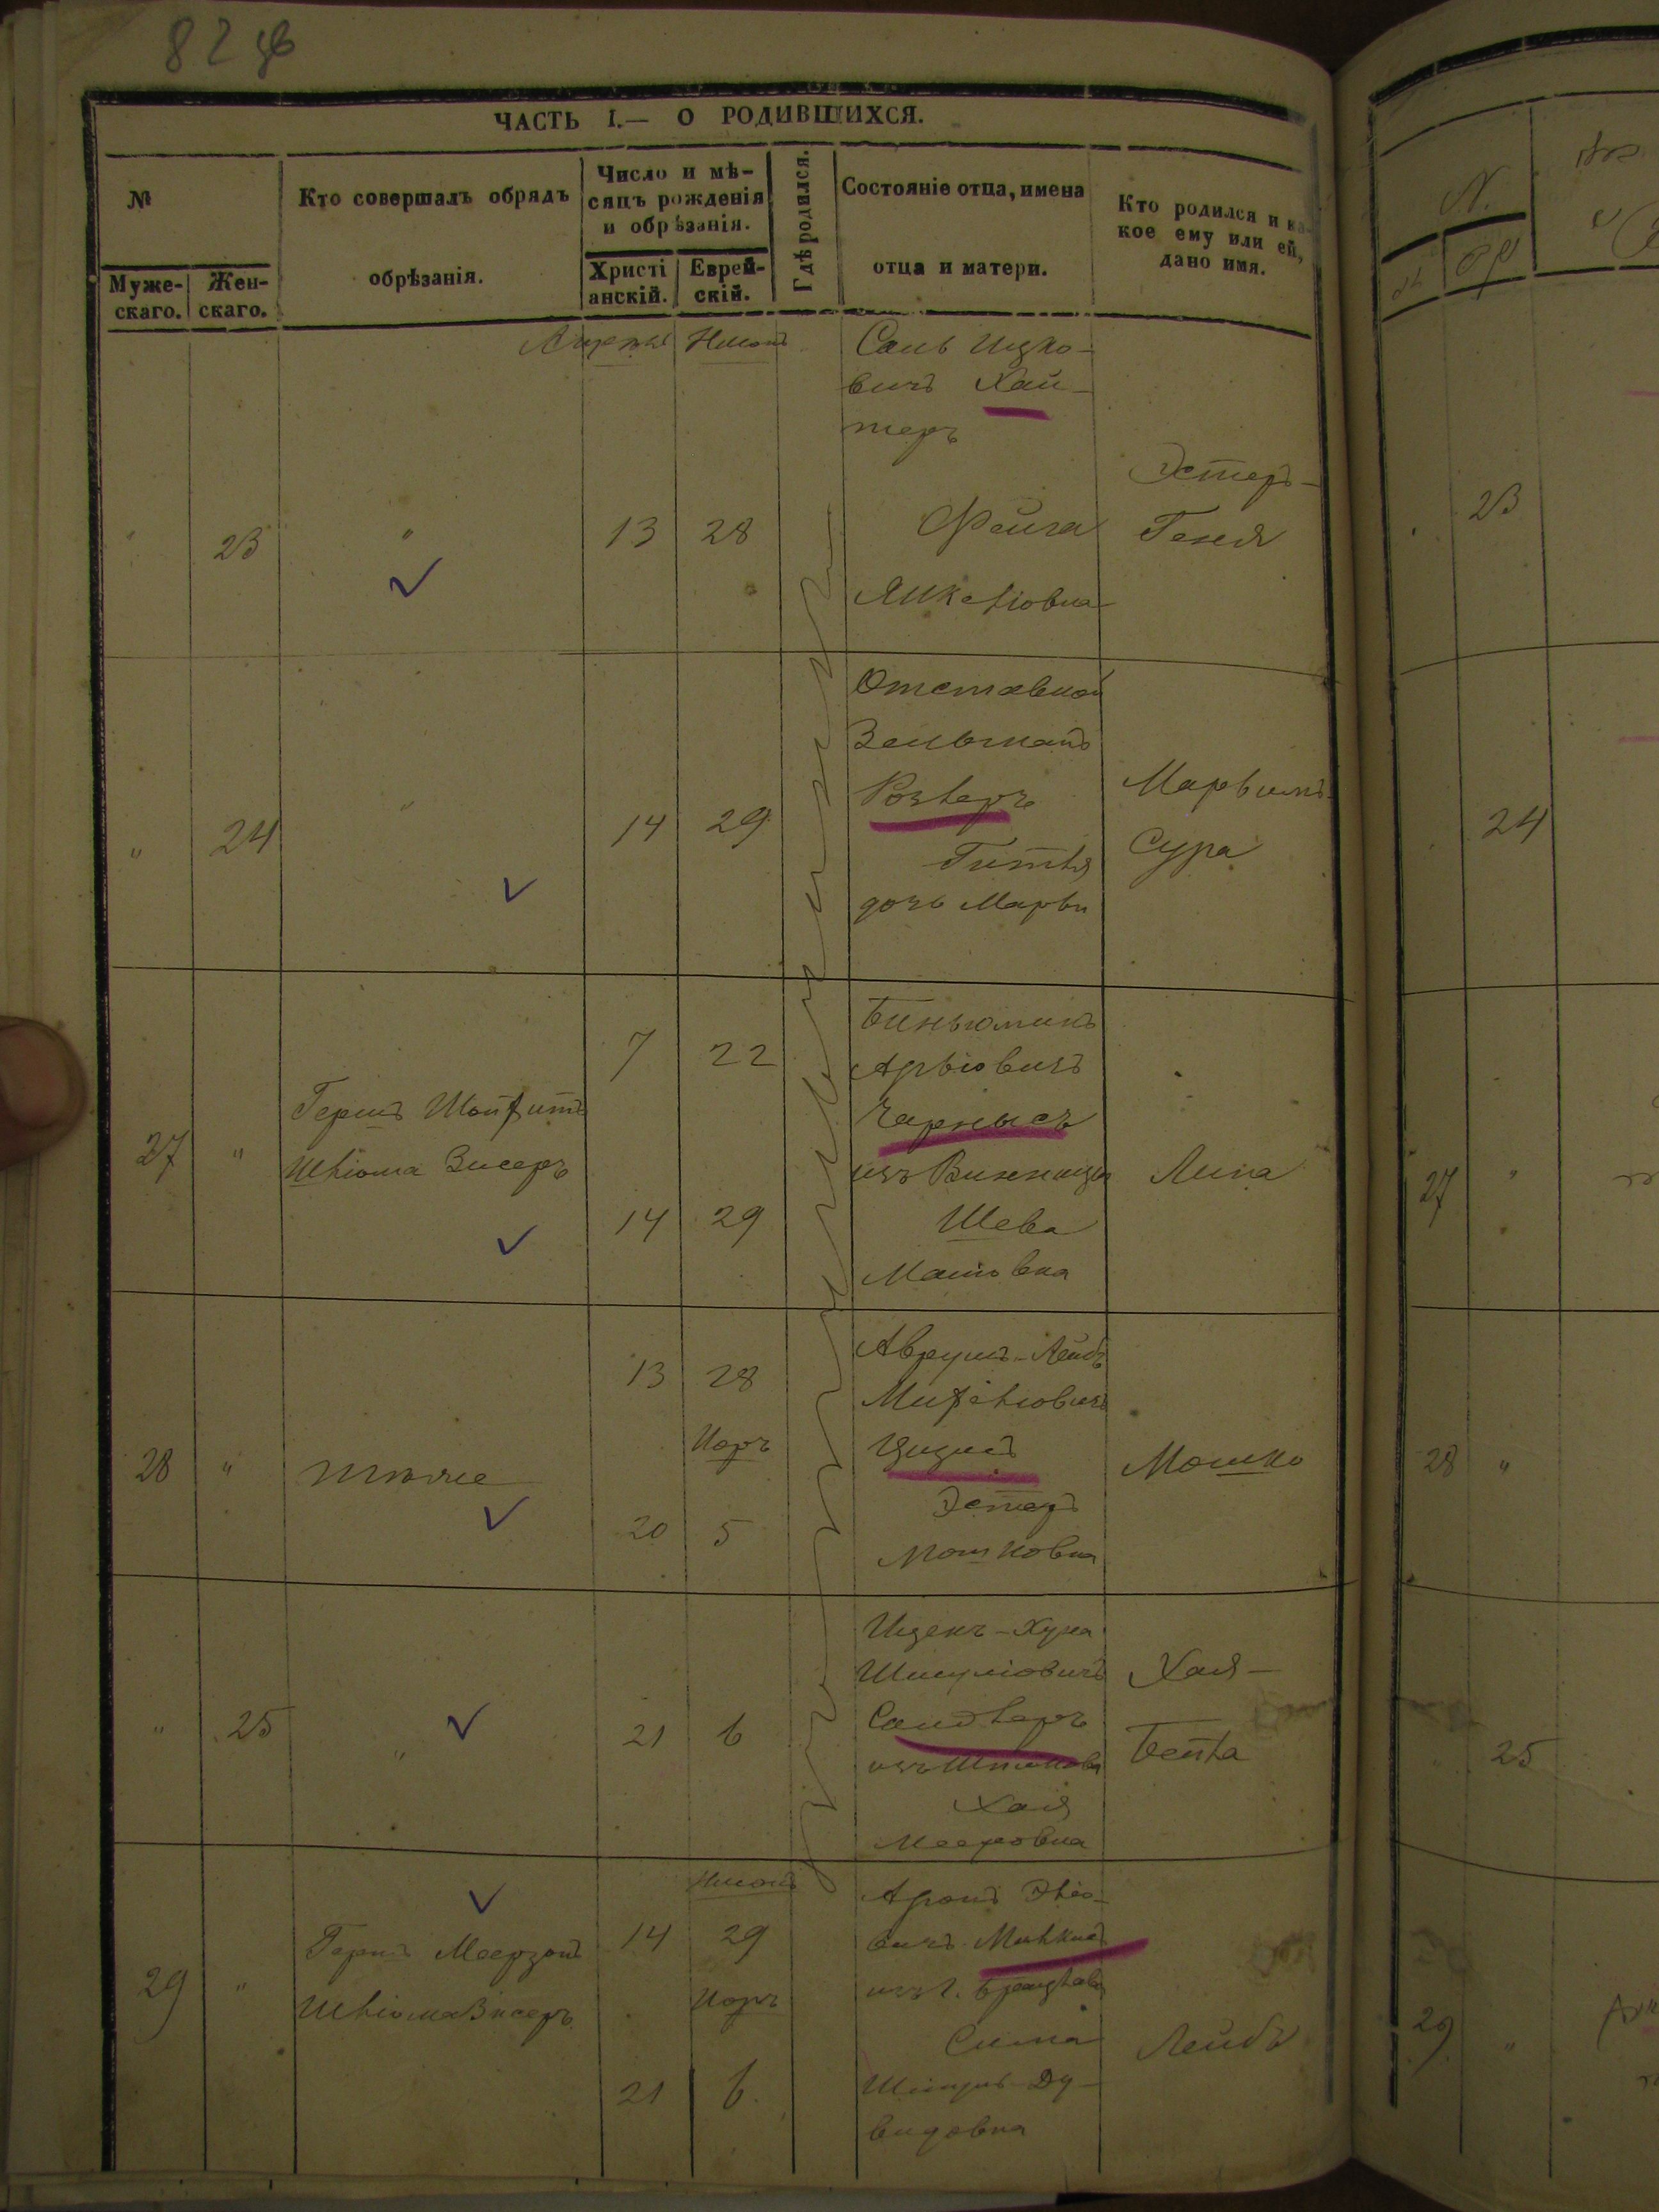 82
ЧАСТЬ I.— О РОДИВШИХСЯ.
№
Муже-
скаго.
Жен-
скаго.
Кто совершалъ обрядъ
обрѣзанія.
Число и мѣ-
сяцъ рожденія
и обрѣзанія.
Христі
анскій.
Еврей-
скій.
Гдѣ родился.
Состояніе отца, имена
отца и матери.
Кто родился и ка-
кое ему или ей,
дано имя.
Нисонъ
" 23 " 13 28
Ицко-
вичъ Хай-
теръ
Фейга
Янкеліовна
Эстеръ-
Геня
" 24 " 14 29
Отставной
Зельманъ
Розлеръ
Гитля
дочь Марки
Сура
27 "
Гершъ
Шліома Висеръ
7 22
14 29
Биньюминъ
Арьіовичъ
Чарнысъ
изъ Винницы
Шева
Мошковна
Липа
28 " тоже
13 28
Иоръ
20 5
Аврумъ-Лейбъ
Эстеръ
Мошковна
Мошко
" 25 " 21 6
Ицекъ-Хуна
Шмуліовичъ
Сандлеръ
изъ Шпикова
Хая
Мееровна
Хая-
Бейла
29 "
Гершъ Меерзонъ
Шліома Висеръ
Нисонъ
14 29
Иоръ
21 6.
Аронъ Эліо-
вичъ
изъ г. Брацлава
Сима
Ду-
видовна
Лейбъ
23
24
27 "
28 "
25
29 "